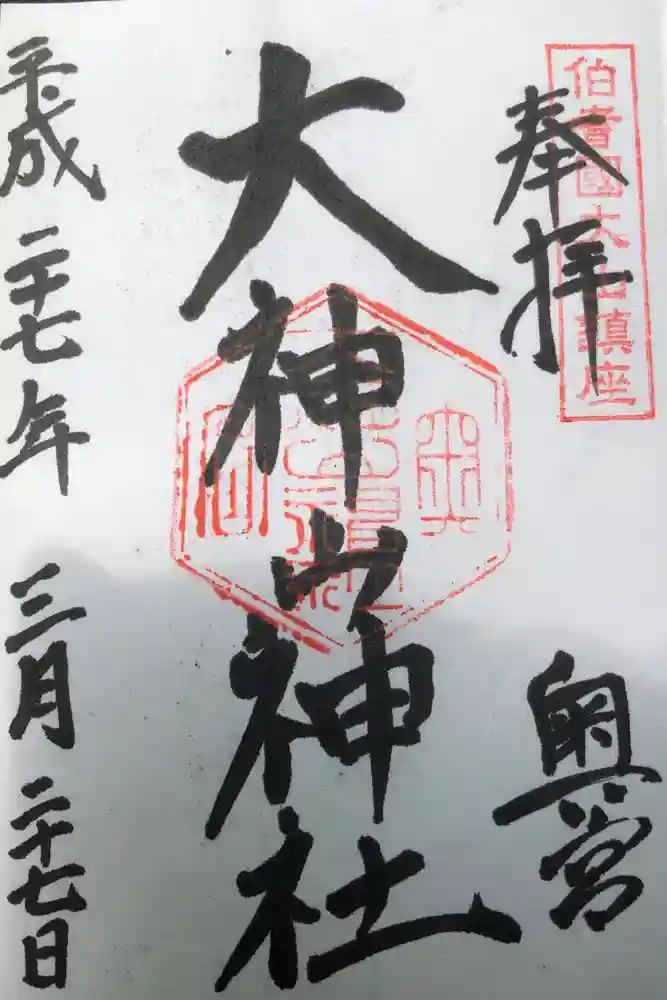 奉拝
伯耆國大山鎮座
奥宮
大神山神社
平成二十七年三月二十七日